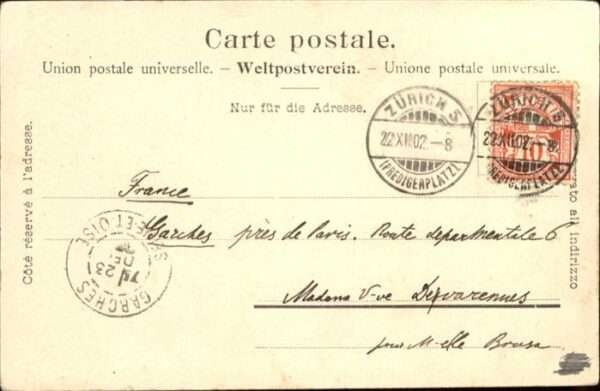 Carte postale.
Union postale universelle. – Weltpostverein. – Unione postale universale.
Nur für die Adresse.
Côté réservé à l'adresse.
ZÜRICH 5
22.XII.02.–8
(PREDIGERPLATZ)
ZÜRICH 5
22.XII.02.–8
(PREDIGERPLATZ)
10
France
Garches près de Paris. Route departmentale 6
Madame V-ve Desvarennes
pour M-elle
GARCHES
ET OISE
23
DEC
ato all' indirizzo